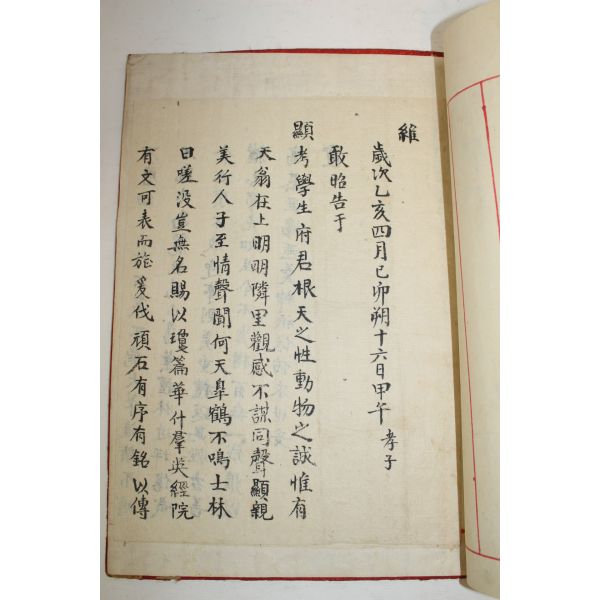 維
歲次乙亥四月己卯朔十六日甲午 孝子
敢昭告于
顯考學生府君根天之性動物之誠惟有
天翁在上明明隣里觀感不謀同聲顯親
美行人子至情聲聞何天皐鶴不鳴士林
曰嗟没豈無名賜以瓊篇華什羣英經院
有文可表而旌爰伐頑石有序有銘以傳